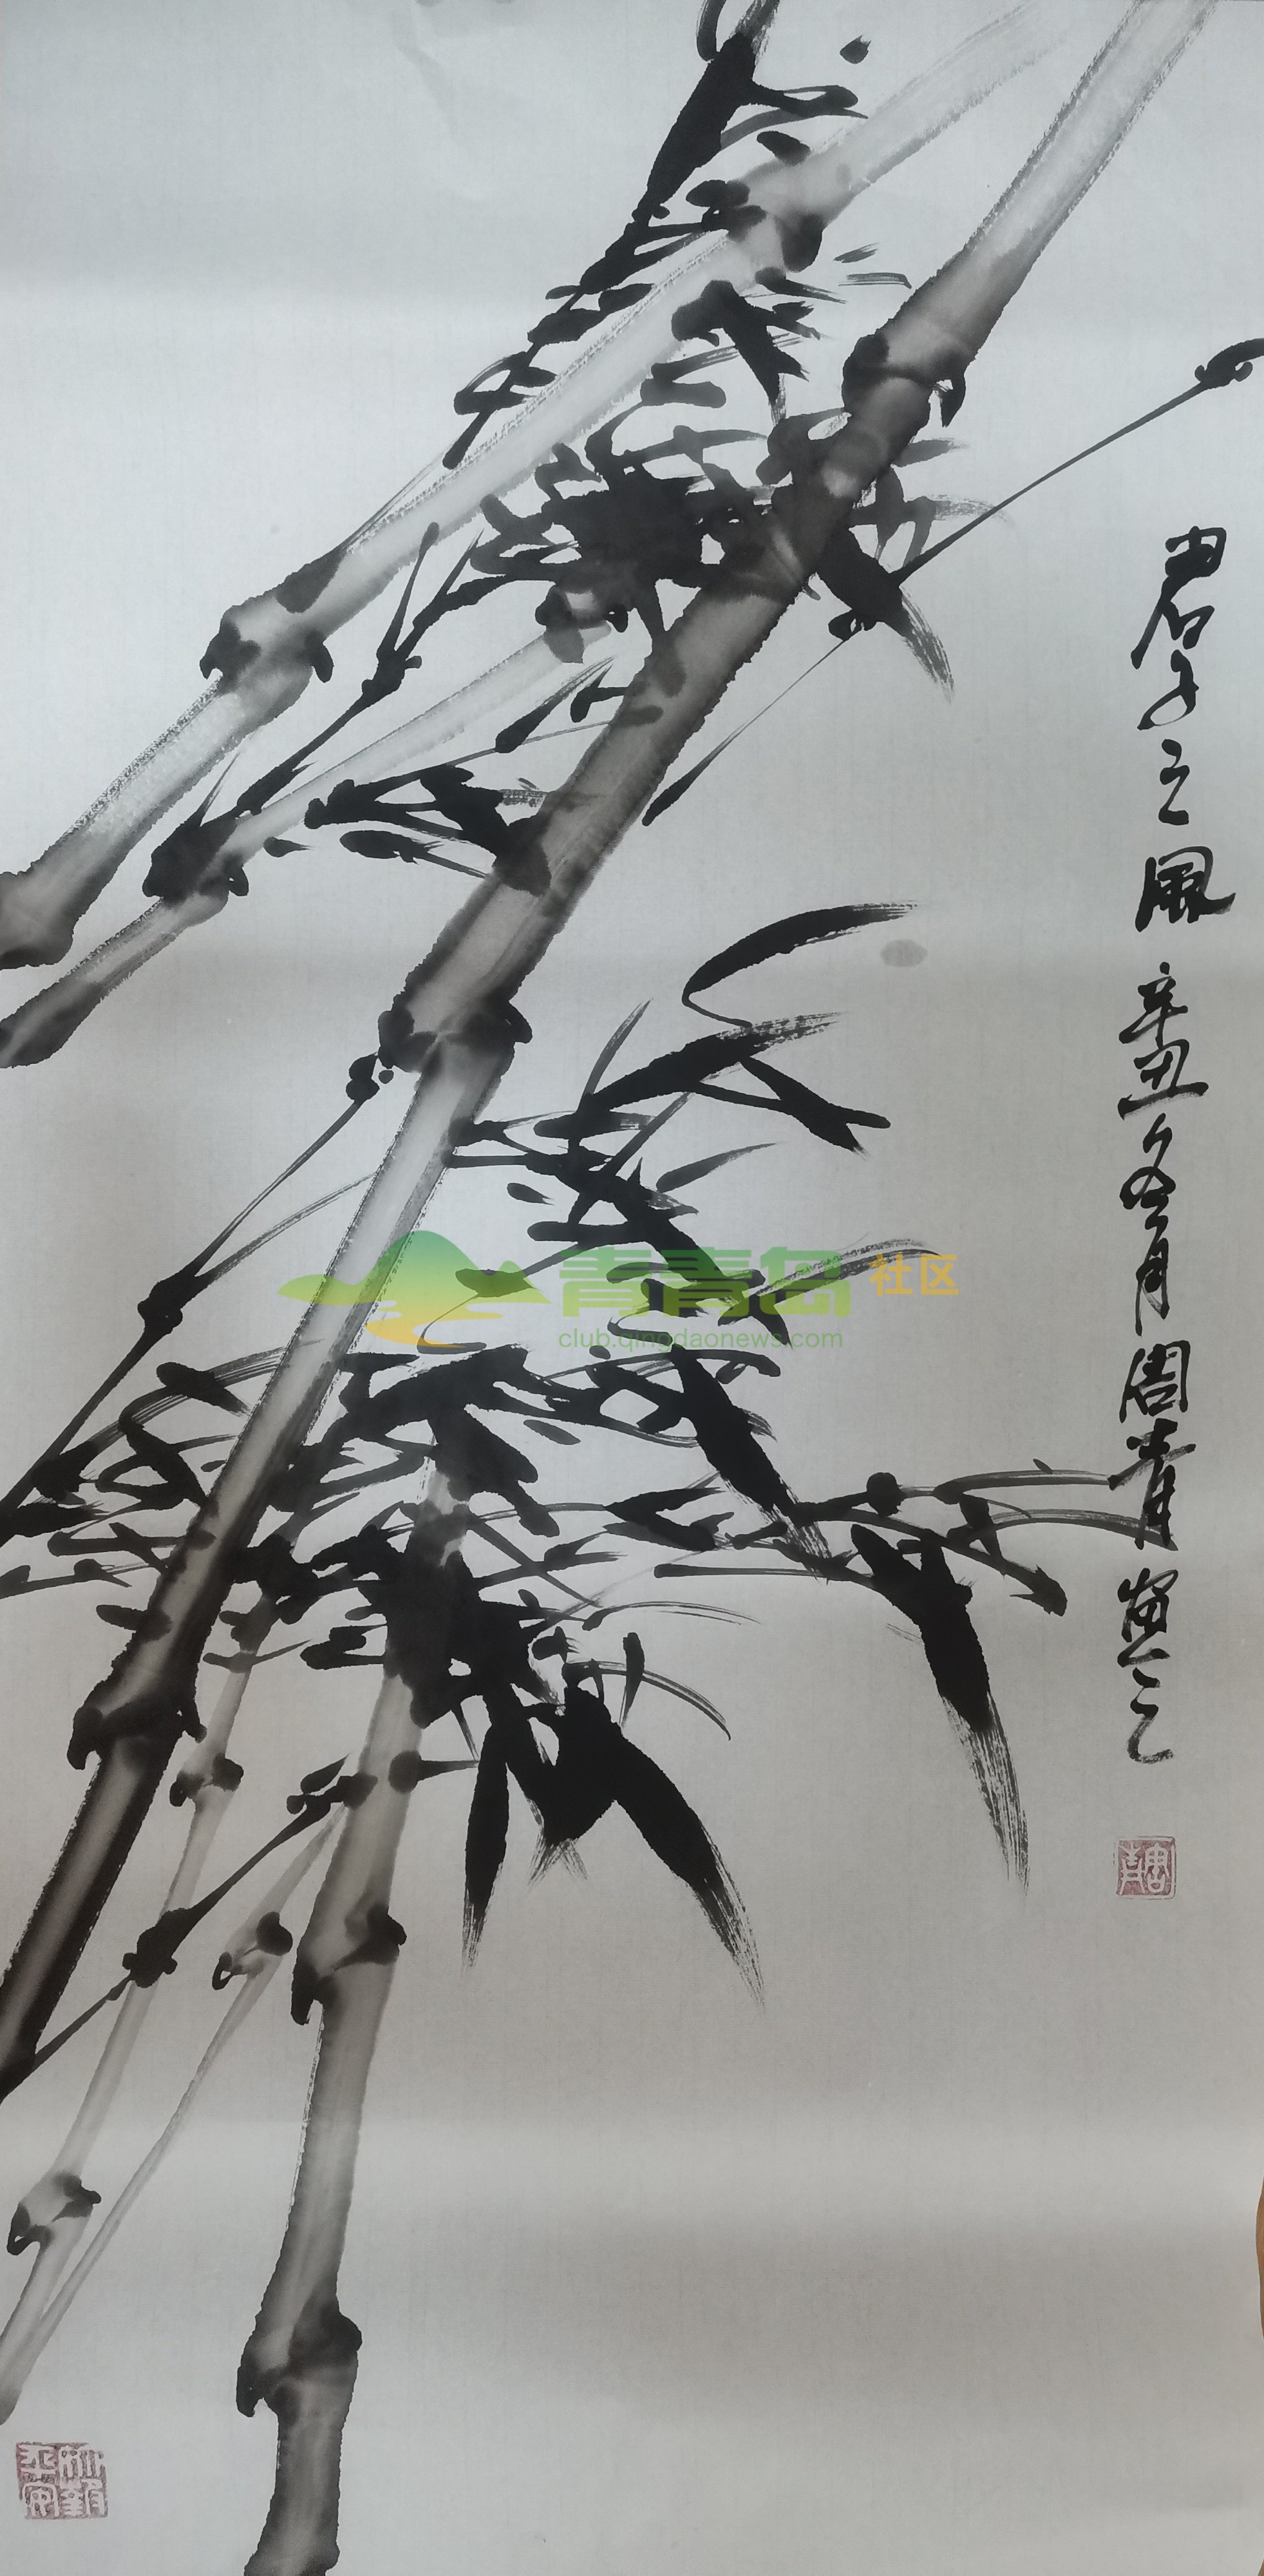 君子之风 辛丑冬月 周青 画之
周青
竹报平安
青青岛社区
club.qingdaonews.com